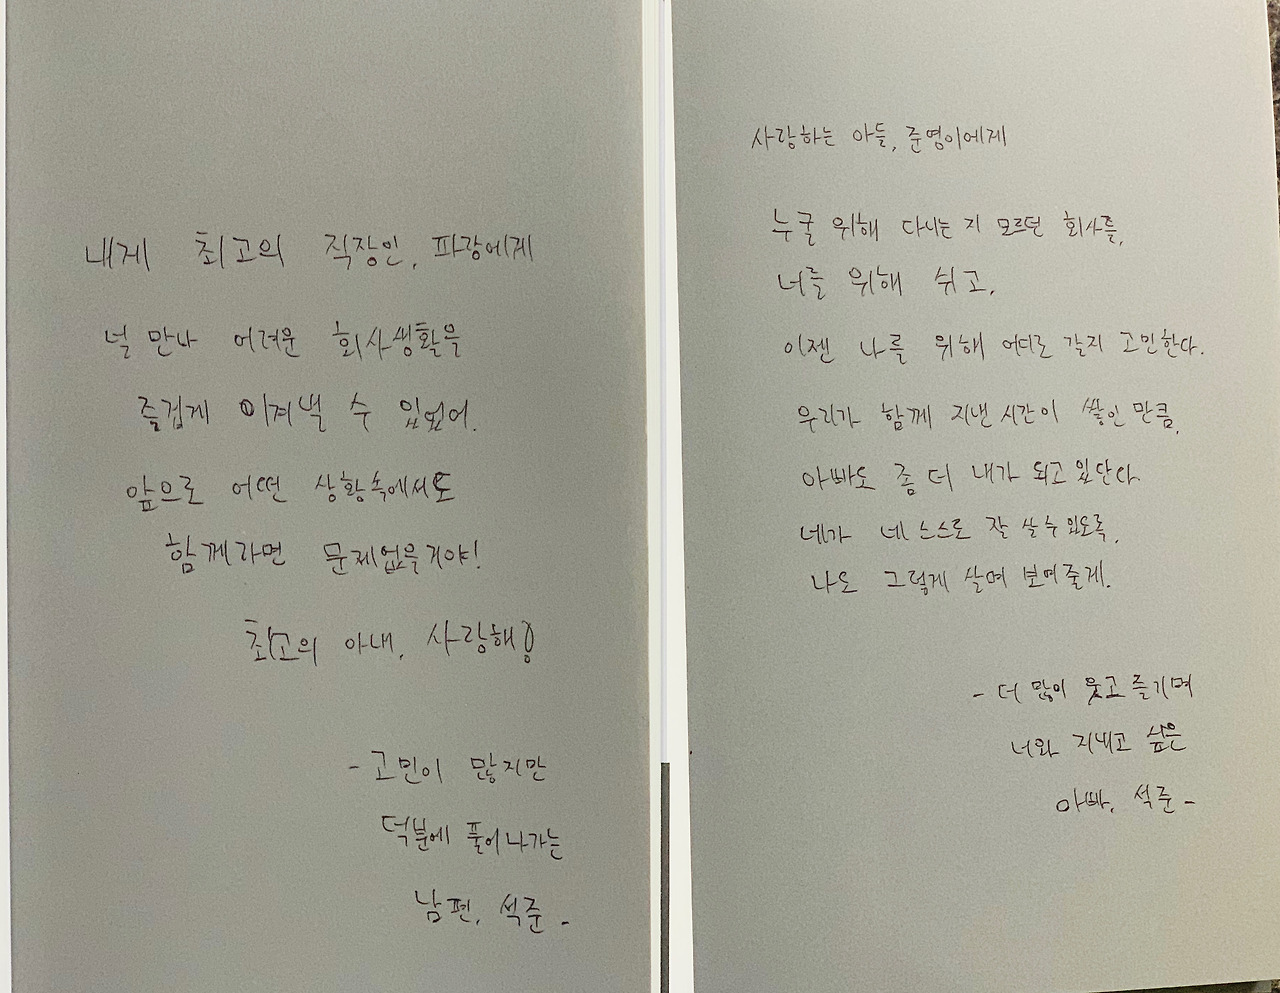 내게 최고의 직장인, 파랑에게
널 만나 어려운 회사생활을
즐겁게 이겨낼 수 있었어.
앞으로 어떤 상황속에서도
함께라면 문제없을거야!
최고의 아내, 사랑해!
- 고민이 많지만
덕분에 풀어나가는
남편, 석준 -
사랑하는 아들, 준영이에게
누굴 위해 다니는 지 모르던 회사를,
너를 위해 쉬고,
이젠 나를 위해 어디로 갈지 고민한다.
우리가 함께 지낸 시간이 쌓인 만큼,
아빠도 좀 더 내가 되고 있단다.
네가 네 스스로 잘 살 수 있도록,
나도 그렇게 살며 보여줄게.
- 더 많이 웃고 즐기며
너와 지내고 싶은
아빠, 석준 -